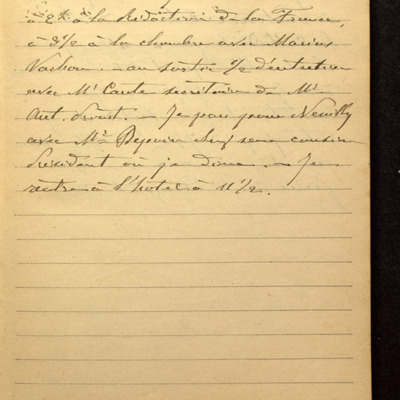 à 2h à la Rédaction de la France,
à 3 1/2 à la chambre avec Marius
au sortir 1/2 d'entretien
avec Mr secrétaire de Mr
Ant. Je pars pour Neuilly
avec Mr Dejouin chez son cousin
Président où je dine. — Je
rentre à l'hotel à 11 1/2.